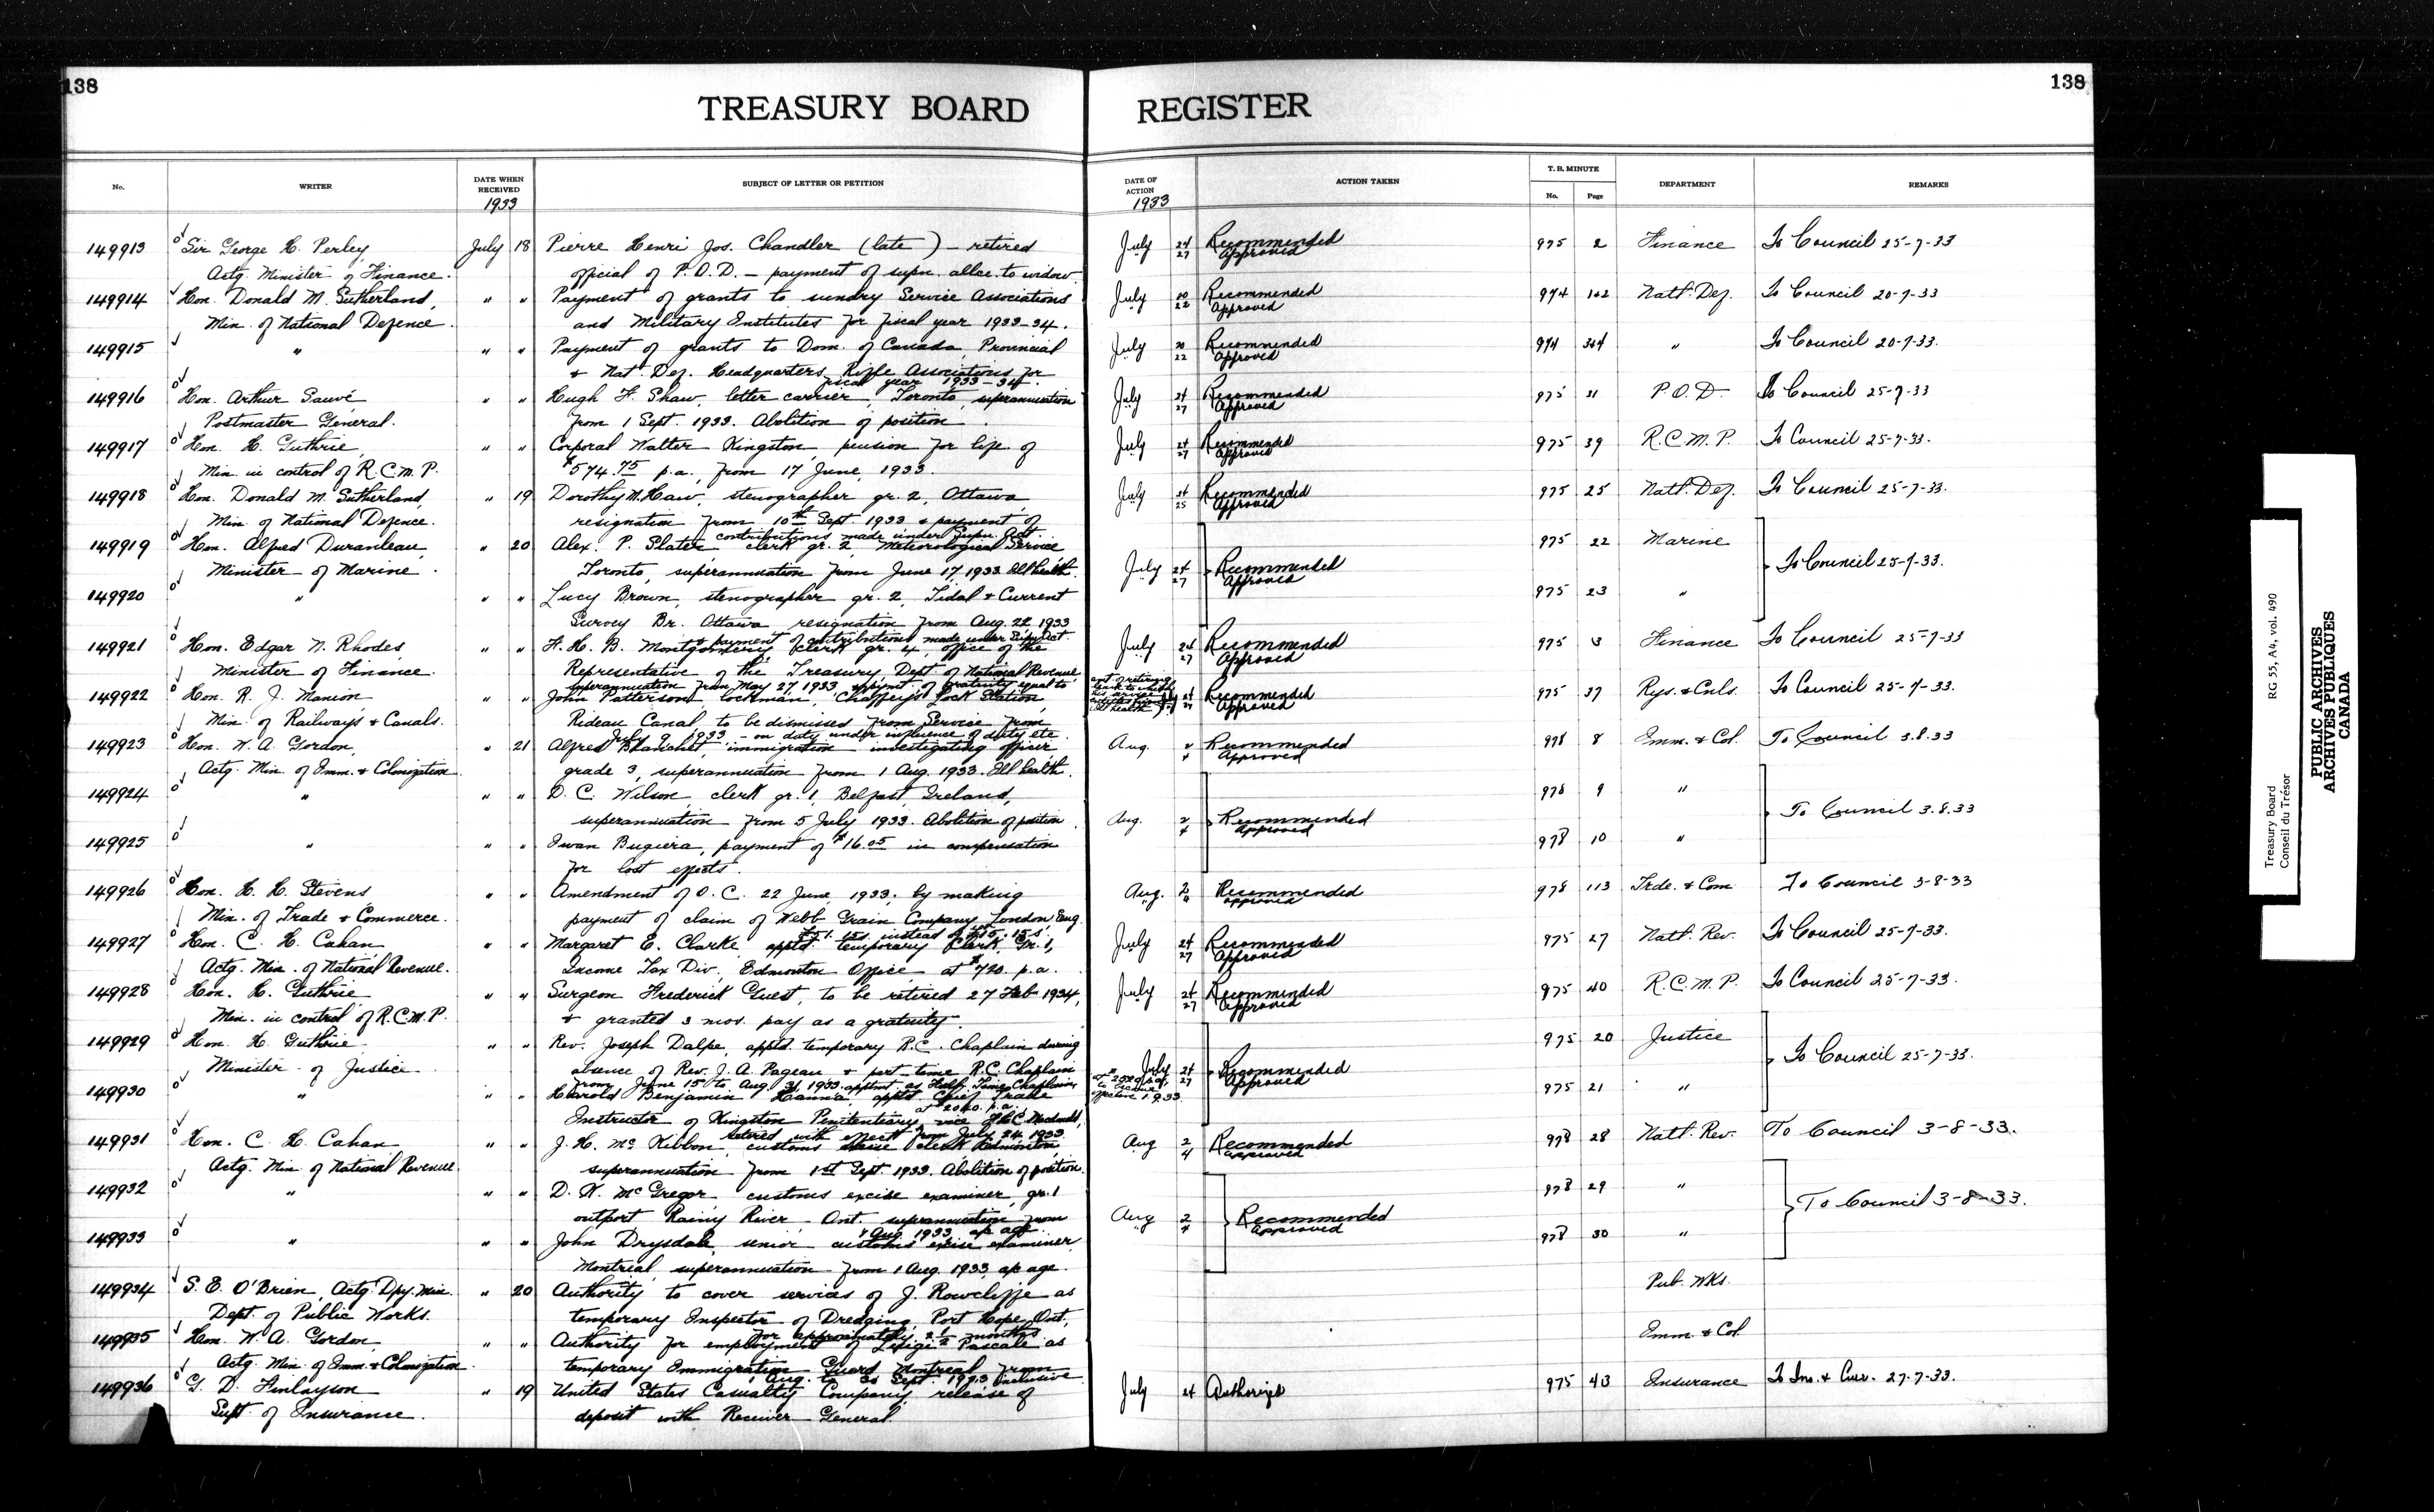 138
TREASURY BOARD REGISTER
138
No. WRITER DATE WHEN RECEIVED 1933 SUBJECT OF LETTER OR PETITION DATE OF ACTION 1933 ACTION TAKEN T. B. MINUTE No. Page DEPARTMENT REMARKS
149913 Sir George H. Perley July 18 Pierre Henri Jos. Chandler (late) — retired July 24 Recommended 975 2 Finance To Council 25-7-33
Actg. Minister of Finance. official of P.O.D. — payment of supn. allce. to widow 27 Approved
149914 Hon. Donald M. Sutherland, " " Payment of grants to sundry Service Associations July 20 Recommended 974 102 Natl. Def. To Council 20-7-33
Min. of National Defence. and Military Institutes for fiscal year 1933-34. 22 Approved
149915 " " " Payment of grants to Dom. of Canada, Provincial July 20 Recommended 974 344 " To Council 20-7-33.
& Nat. Def. Headquarters Rifle Associations for 22 Approved
fiscal year 1933-34.
149916 Hon. Arthur Sauvé " " Hugh F. Shaw, letter carrier, Toronto, superannuation July 24 Recommended 975 31 P.O.D. To Council 25-7-33
Postmaster General. from 1 Sept. 1933. Abolition of position. 27 Approved
149917 Hon. H. Guthrie, " " Corporal Walter Kingston, pension for life of July 24 Recommended 975 39 R.C.M.P. To Council 25-7-33.
Min. in control of R.C.M.P. $574.75 p.a., from 17 June, 1933. 27 Approved
149918 Hon. Donald M. Sutherland, " 19 Dorothy M. Haw, stenographer gr. 2, Ottawa July 24 Recommended 975 25 Natl. Def. To Council 25-7-33.
Min. of National Defence. resignation from 10th Sept 1933 & payment of 25 Approved
contributions made under Supn. Act.
149919 Hon. Alfred Duranleau, " 20 Alex. P. Slater clerk gr. 2, Meteorological Service 975 22 Marine
Minister of Marine. Toronto, superannuation from June 17, 1933. Ill health. July 24 27 Recommended Approved To Council 25-7-33.
149920 " " " Lucy Brown, stenographer gr. 2, Tidal & Current 975 23 "
Survey Br. Ottawa resignation from Aug. 22 1933
& payment of contributions made under Supn Act.
149921 Hon. Edgar N. Rhodes " " F. H. B. Montgomery clerk gr. 4, office of the July 24 Recommended 975 3 Finance To Council 25-7-33
Minister of Finance. Representative of the Treasury, Dept. of National Revenue 27 Approved
superannuation from May 27, 1933 & paymt. of gratuity equal to
149922 Hon. R. J. Manion, " " John Patterson, lockman, Chaffey's Lock Station, 24 Recommended 975 37 Rys. & Cnls. To Council 25-7-33.
Min. of Railways & Canals. Rideau Canal, to be dismissed from Service from 27 Approved
July 9, 1933 — on duty under influence of duty etc
149923 Hon. W. A. Gordon, " 21 Alfred Blanchet, immigration investigating officer Aug. 2 Recommended 978 8 Imm. & Col. To Council 3.8.33
Actg. Min. of Imm. & Colonization grade 3, superannuation from 1 Aug. 1933. Ill health. 4 Approved
149924 " " " D. C. Wilson, clerk gr. 1, Belfast, Ireland, 978 9 "
superannuation from 5 July 1933. Abolition of position Aug. 2 4 Recommended Approved To Council 3.8.33
149925 " " " Iwan Bugiera, payment of $16.05 in compensation 978 10 "
for lost effects.
149926 Hon. H. H. Stevens " " Amendment of O.C. 22 June, 1933, by making Aug. 2 Recommended 978 113 Trde. & Com To Council 3-8-33
Min. of Trade & Commerce. payment of claim of Webb Grain Company London Eng. 4 approved
149927 Hon. C. H. Cahan " " Margaret E. Clarke, apptd. temporary Clerk, Gr. 1, July 24 Recommended 975 27 Natl. Rev. To Council 25-7-33.
Actg. Min. of National Revenue. Income Tax Div., Edmonton Office at $720. p.a. 27 Approved
149928 Hon. H. Guthrie " " Surgeon Frederick Guest, to be retired 27 Feb 1934, July 24 Recommended 975 40 R.C.M.P. To Council 25-7-33.
Min. in control of R.C.M.P. & granted 3 mos. pay as a gratuity. 27 Approved
149929 Hon. H. Guthrie " " Rev. Joseph Dalpe, apptd. temporary R.C. Chaplain during 975 20 Justice
Minister of Justice absence of Rev. J. A. Pageau & part-time R.C. Chaplain July 24 27 Recommended Approved To Council 25-7-33.
from June 15 to Aug. 31, 1933, apptmt. as Half Time Chaplain
149930 " " " Harold Benjamin Hanna, apptd. Chief Trade 975 21 "
at $2040. p.a.
Instructor of Kingston Penitentiary
retired with effect from July 24, 1933
149931 Hon. C. H. Cahan " " J. H. McKibbon, customs excise clerk Edmonton, Aug 2 Recommended 978 28 Natl. Rev. To Council 3-8-33.
Actg. Min. of National Revenue superannuation from 1st Sept. 1933. Abolition of position. 4 approved
149932 " " " D. W. McGregor customs excise examiner, gr. 1 978 29 "
outport Rainy River, Ont. superannuation from Aug 2 4 Recommended Approved To Council 3-8-33.
1 Aug. 1933 ap age.
149933 " " " John Drysdale, senior customs excise examiner, 978 30 "
Montreal, superannuation from 1 Aug. 1933, ap age.
149934 S. E. O'Brien, Actg. Dpy. Min. " 20 Authority to cover services of J. Rowcliffe as Pub. Wks.
Dept. of Public Works. temporary Inspector of Dredging, Port Hope, Ont,
for approximately 2½ months
149935 Hon. W. A. Gordon, " " Authority for employment of Pascale as Imm. & Col.
Actg. Min. of Imm. & Colonization temporary Immigration Guard Montreal from
1 Aug. to 30 Sept. 1933 inclusive
149936 G. D. Finlayson " 19 United States Casualty Company, release of July 24 Authorized 975 43 Insurance To Ins. & Curr. 27-7-33.
Supt. of Insurance. deposit with Receiver General.
Treasury Board RG 55, A4, vol. 490
Conseil du Trésor
PUBLIC ARCHIVES
ARCHIVES PUBLIQUES
CANADA